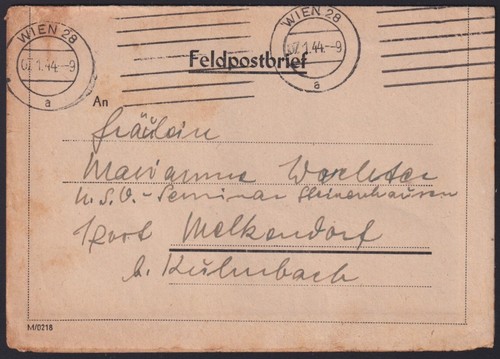 WIEN 28
07.1.44.-9
a
WIEN 28
07.1.44.-9
a
Feldpostbrief
An
Fräulein
Marianne Wachter
N.S.O.-Seminar Steinenhausen
Post Melkendorf
b. Kulmbach
M/0218